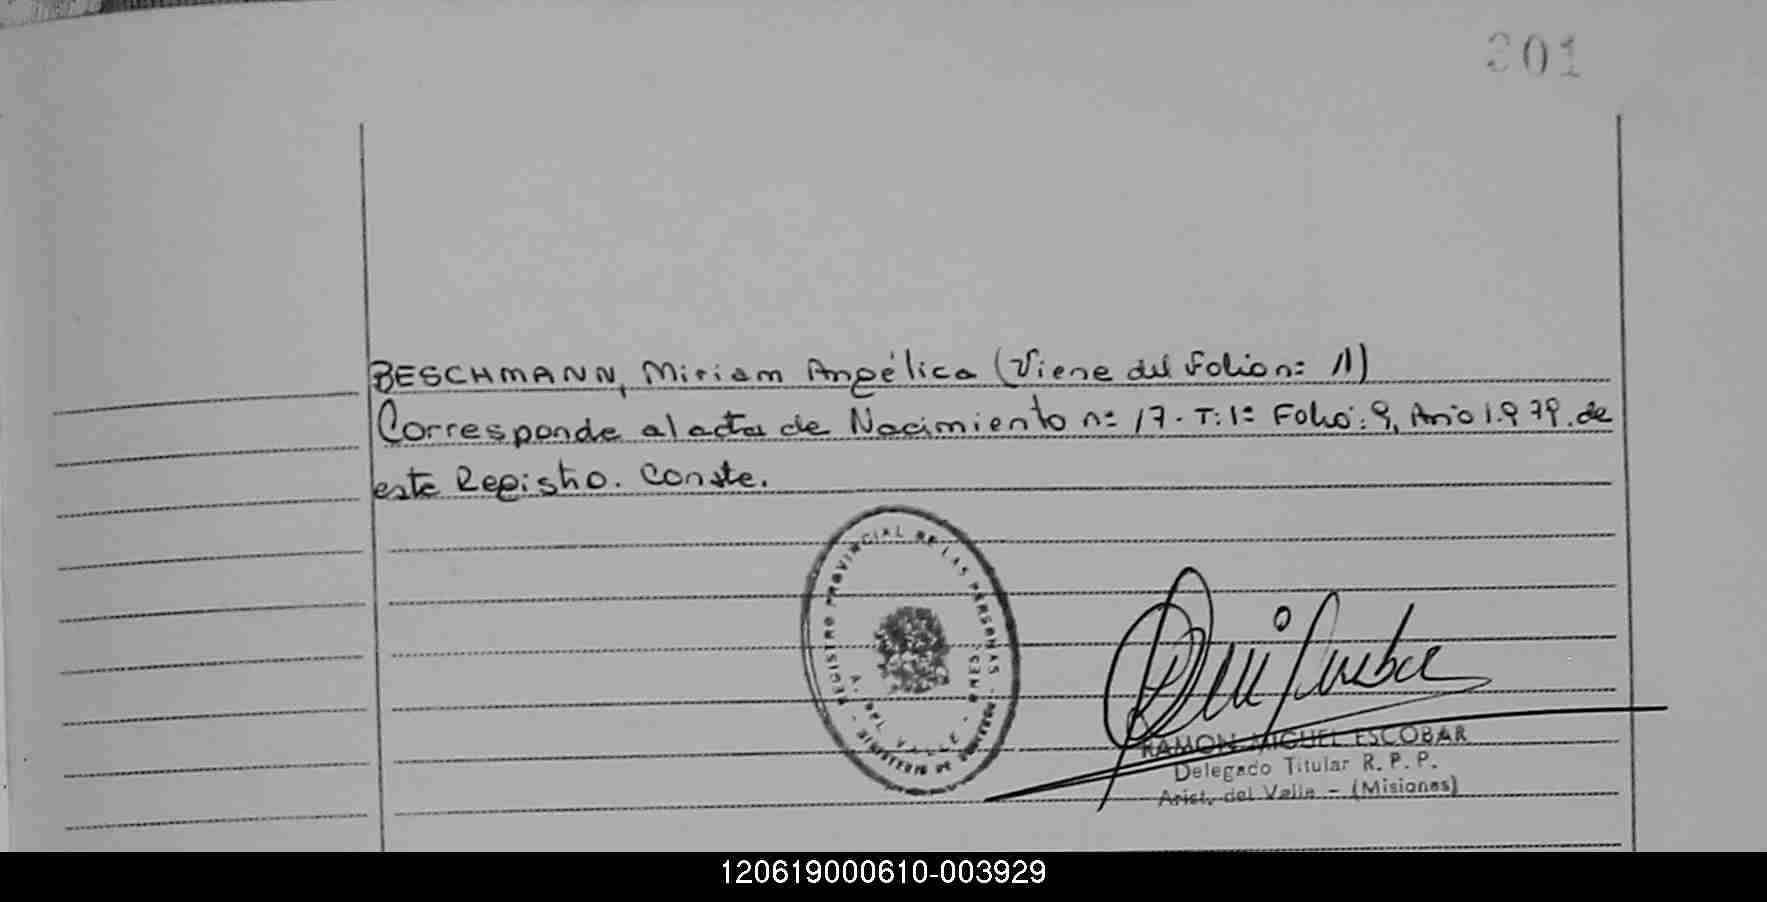 201
BESCHMANN, Miriam Angélica (Viene del folio nº 11)
Corresponde al acta de Nacimiento nº 17. T: 1º Folio: 9, Año 1.979. de
este Registro. Conste.
REGISTRO PROVINCIAL DE LAS PERSONAS
A. DEL VALLE
MINISTERIO DE GOBIERNO
RAMON MIGUEL ESCOBAR
Delegado Titular R. P. P.
Arist. del Valle - (Misiones)
120619000610-003929